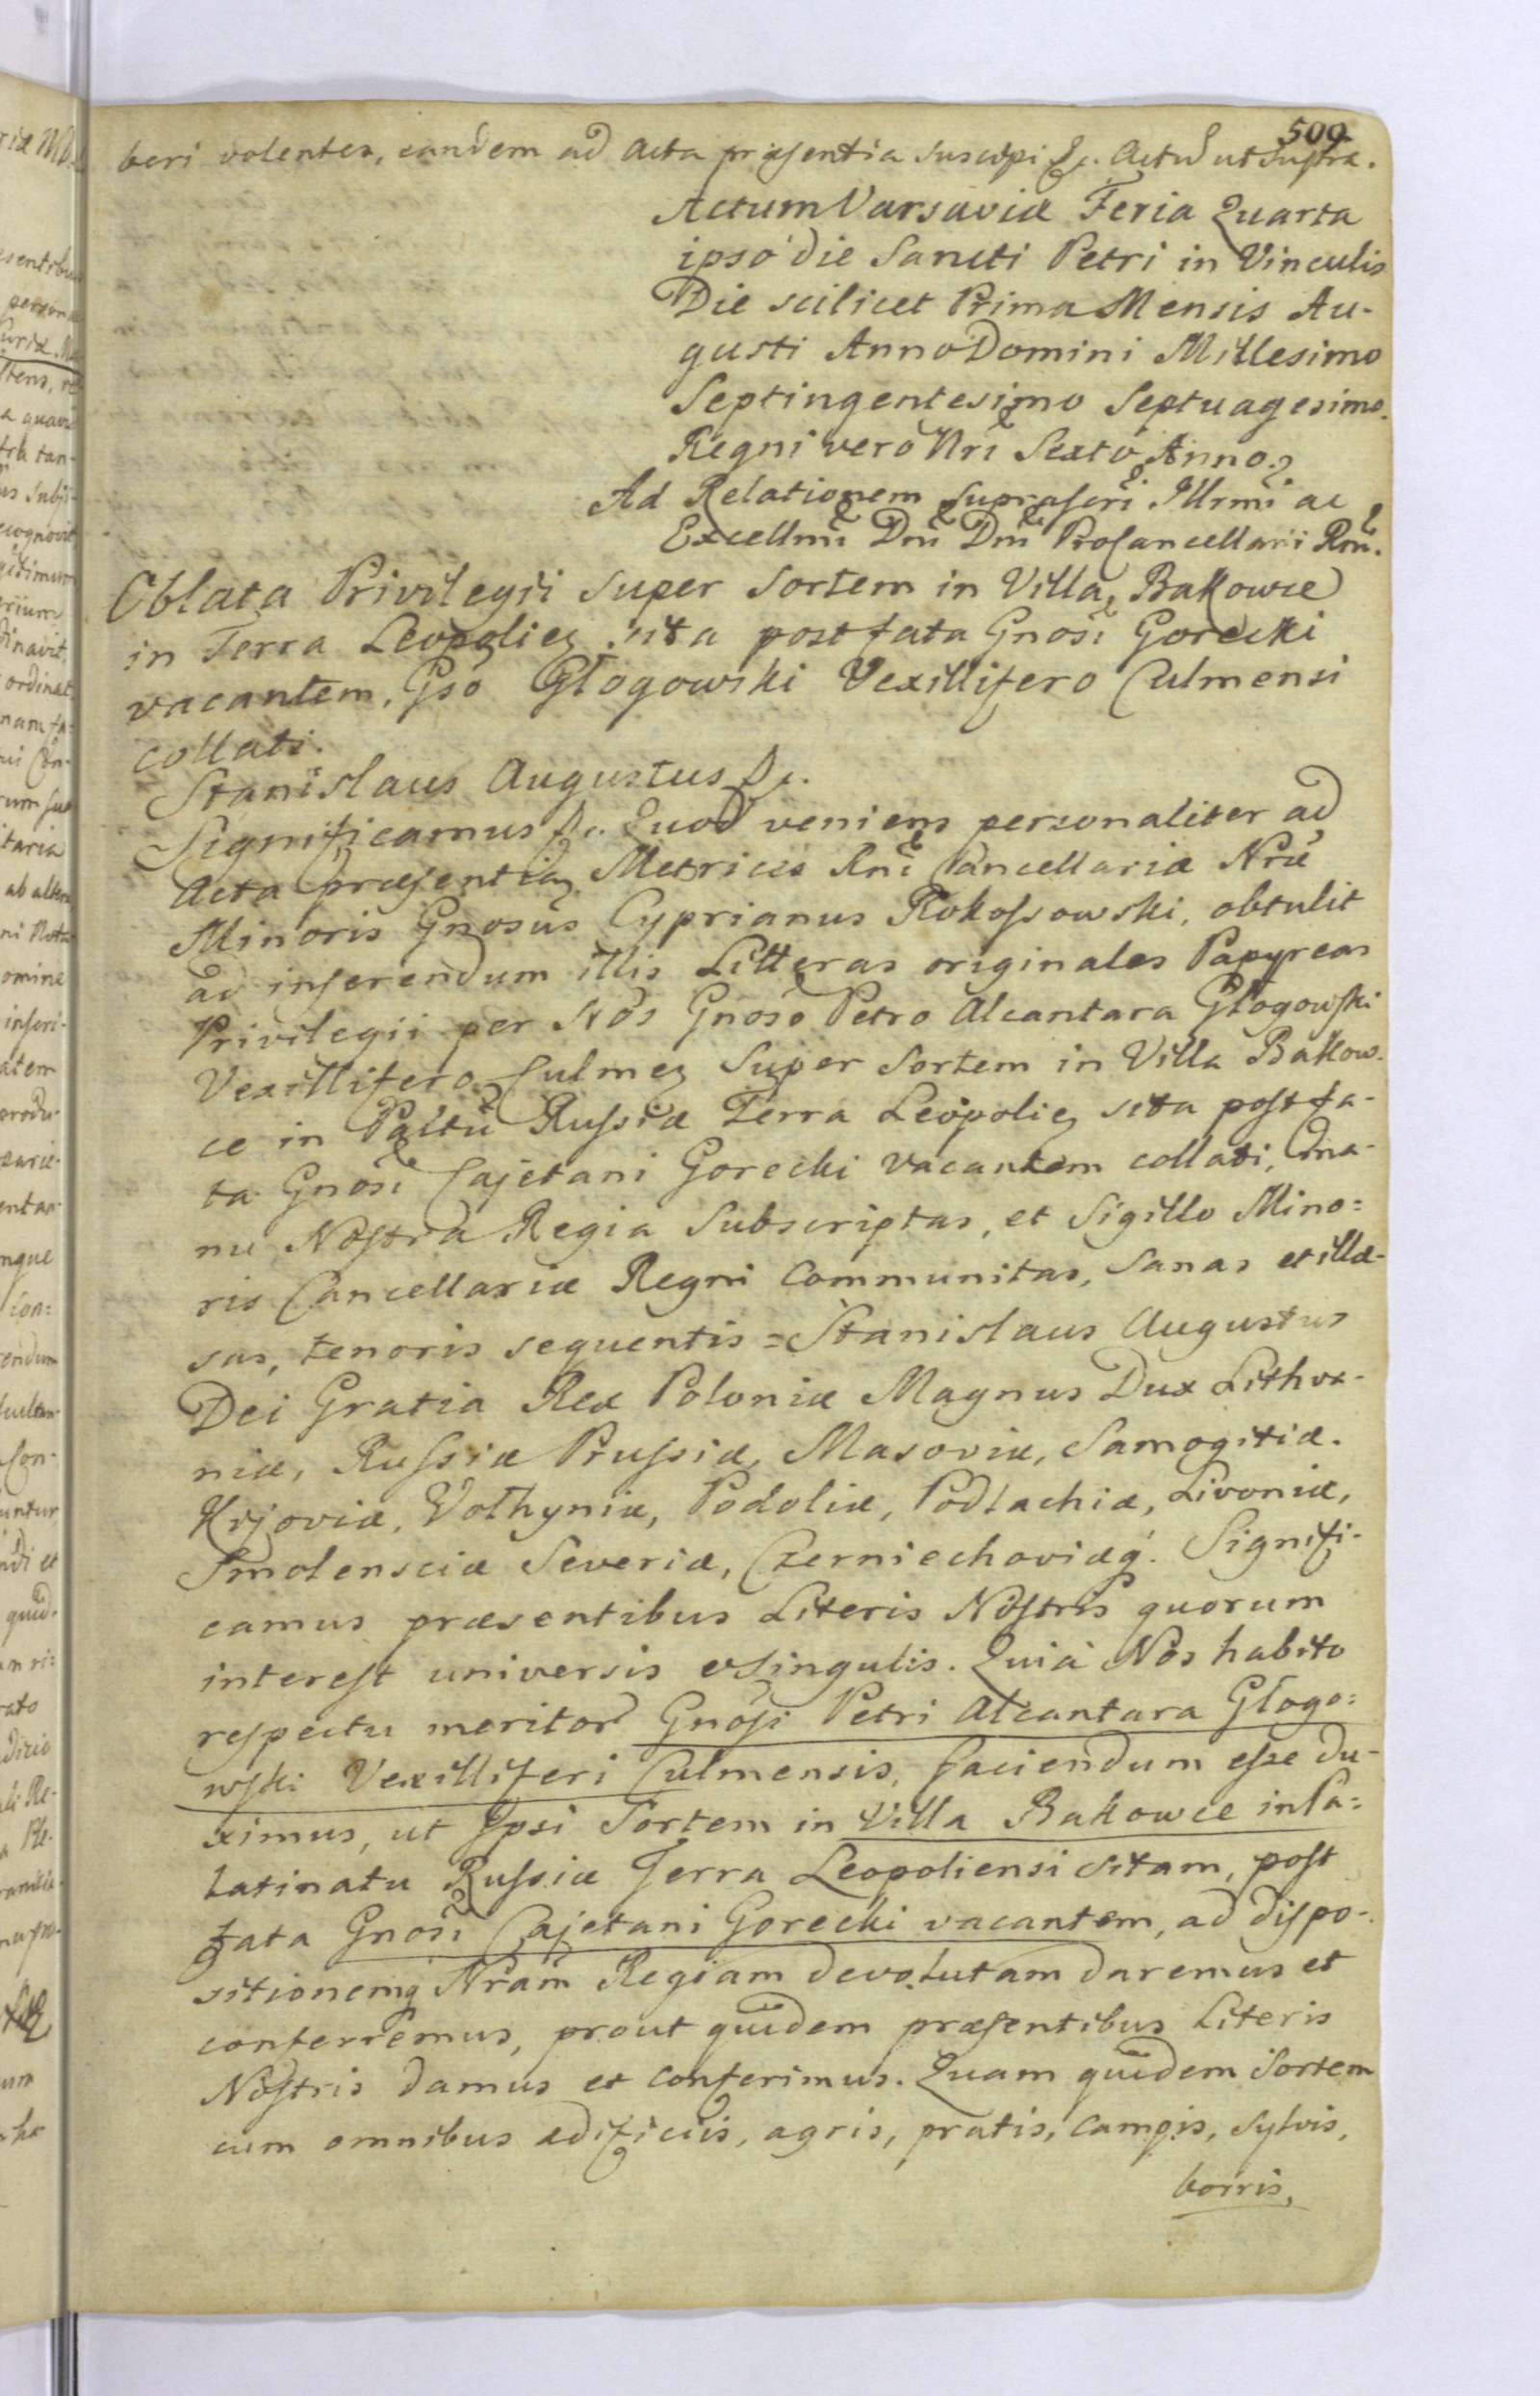 509.
beri volentes, eandem ad Acta præsentia suscipi &c. Actũ ut Supra.
Actum Varsaviæ Feria Quarta
ipso die Sancti Petri in Vinculis
Die scilicet Prima Mensis Au-
gusti Anno Domini Millesimo
Septingentesimo Septuagesimo.
Regni vero Nri Sexto Anno.
Ad Relationem suprascri Illrmi ac
Excellmi Dni Dni ProCancellarii Rni.
Oblata Privilegii super Sortem in Villa Bakowce
in Terra Leopolien sita post fata Gnosi Gorecki
vacantem, Gso Głogowski Vexillifero Culmensi
collati.
Stanislaus Augustus &c.
Significamus &c. Quod veniens personaliter ad
Acta præsentia Metrices Rni Cancellariæ Nræ
Minoris Gnosus Cyprianus Rokossowski, obtulit
ad inserendum illis Litteras originales Papyreas
Privilegii per Nos Gnoso Petro Alcantara Głogowski
Vexillifero Culmen Super Sortem in Villa Bakow-
ce in Pałtu Russiæ Terra Leopolien sita post fa-
ta Gnosi Cajetani Gorecki vacantem collati, ma-
nu Nostra Regia Subscriptas, et Sigillo Mino=
ris Cancellariæ Regni Communitas, Sanas et illæ-
sas, tenoris sequentis = Stanislaus Augustus
Dei Gratia Rex Poloniæ Magnus Dux Lithva-
niæ, Russiæ Prussiæ, Masoviæ, Samogitiæ.
Kijoviæ, Volhyniæ, Podoliæ, Podlachiæ, Livoniæ,
Smolensciæ Severiæ, Czerniechoviæq. Signifi-
camus præsentibus Literis Nostris quorum
interest universis et Singulis. Quia Nos habito
respectu meritor Gnosi Petri Alcantara Głogo=
wski Vexilliferi Culmensis, faciendum esse du-
ximus, ut Ipsi Sortem in Villa Bakowce in Pa=
latinatu Russiæ Terra Leopoliensi sitam, post
fata Gnosi Cajetani Gorecki vacantem, ad dispo-
sitionemq Nram Regiam devolutam daremus et
conferremus, prout quidem præsentibus Literis
Nostris damus et conferimus. Quam quidem Sortem
cum omnibus ædificiis, agris, pratis, campis, Sylvis,
borris,